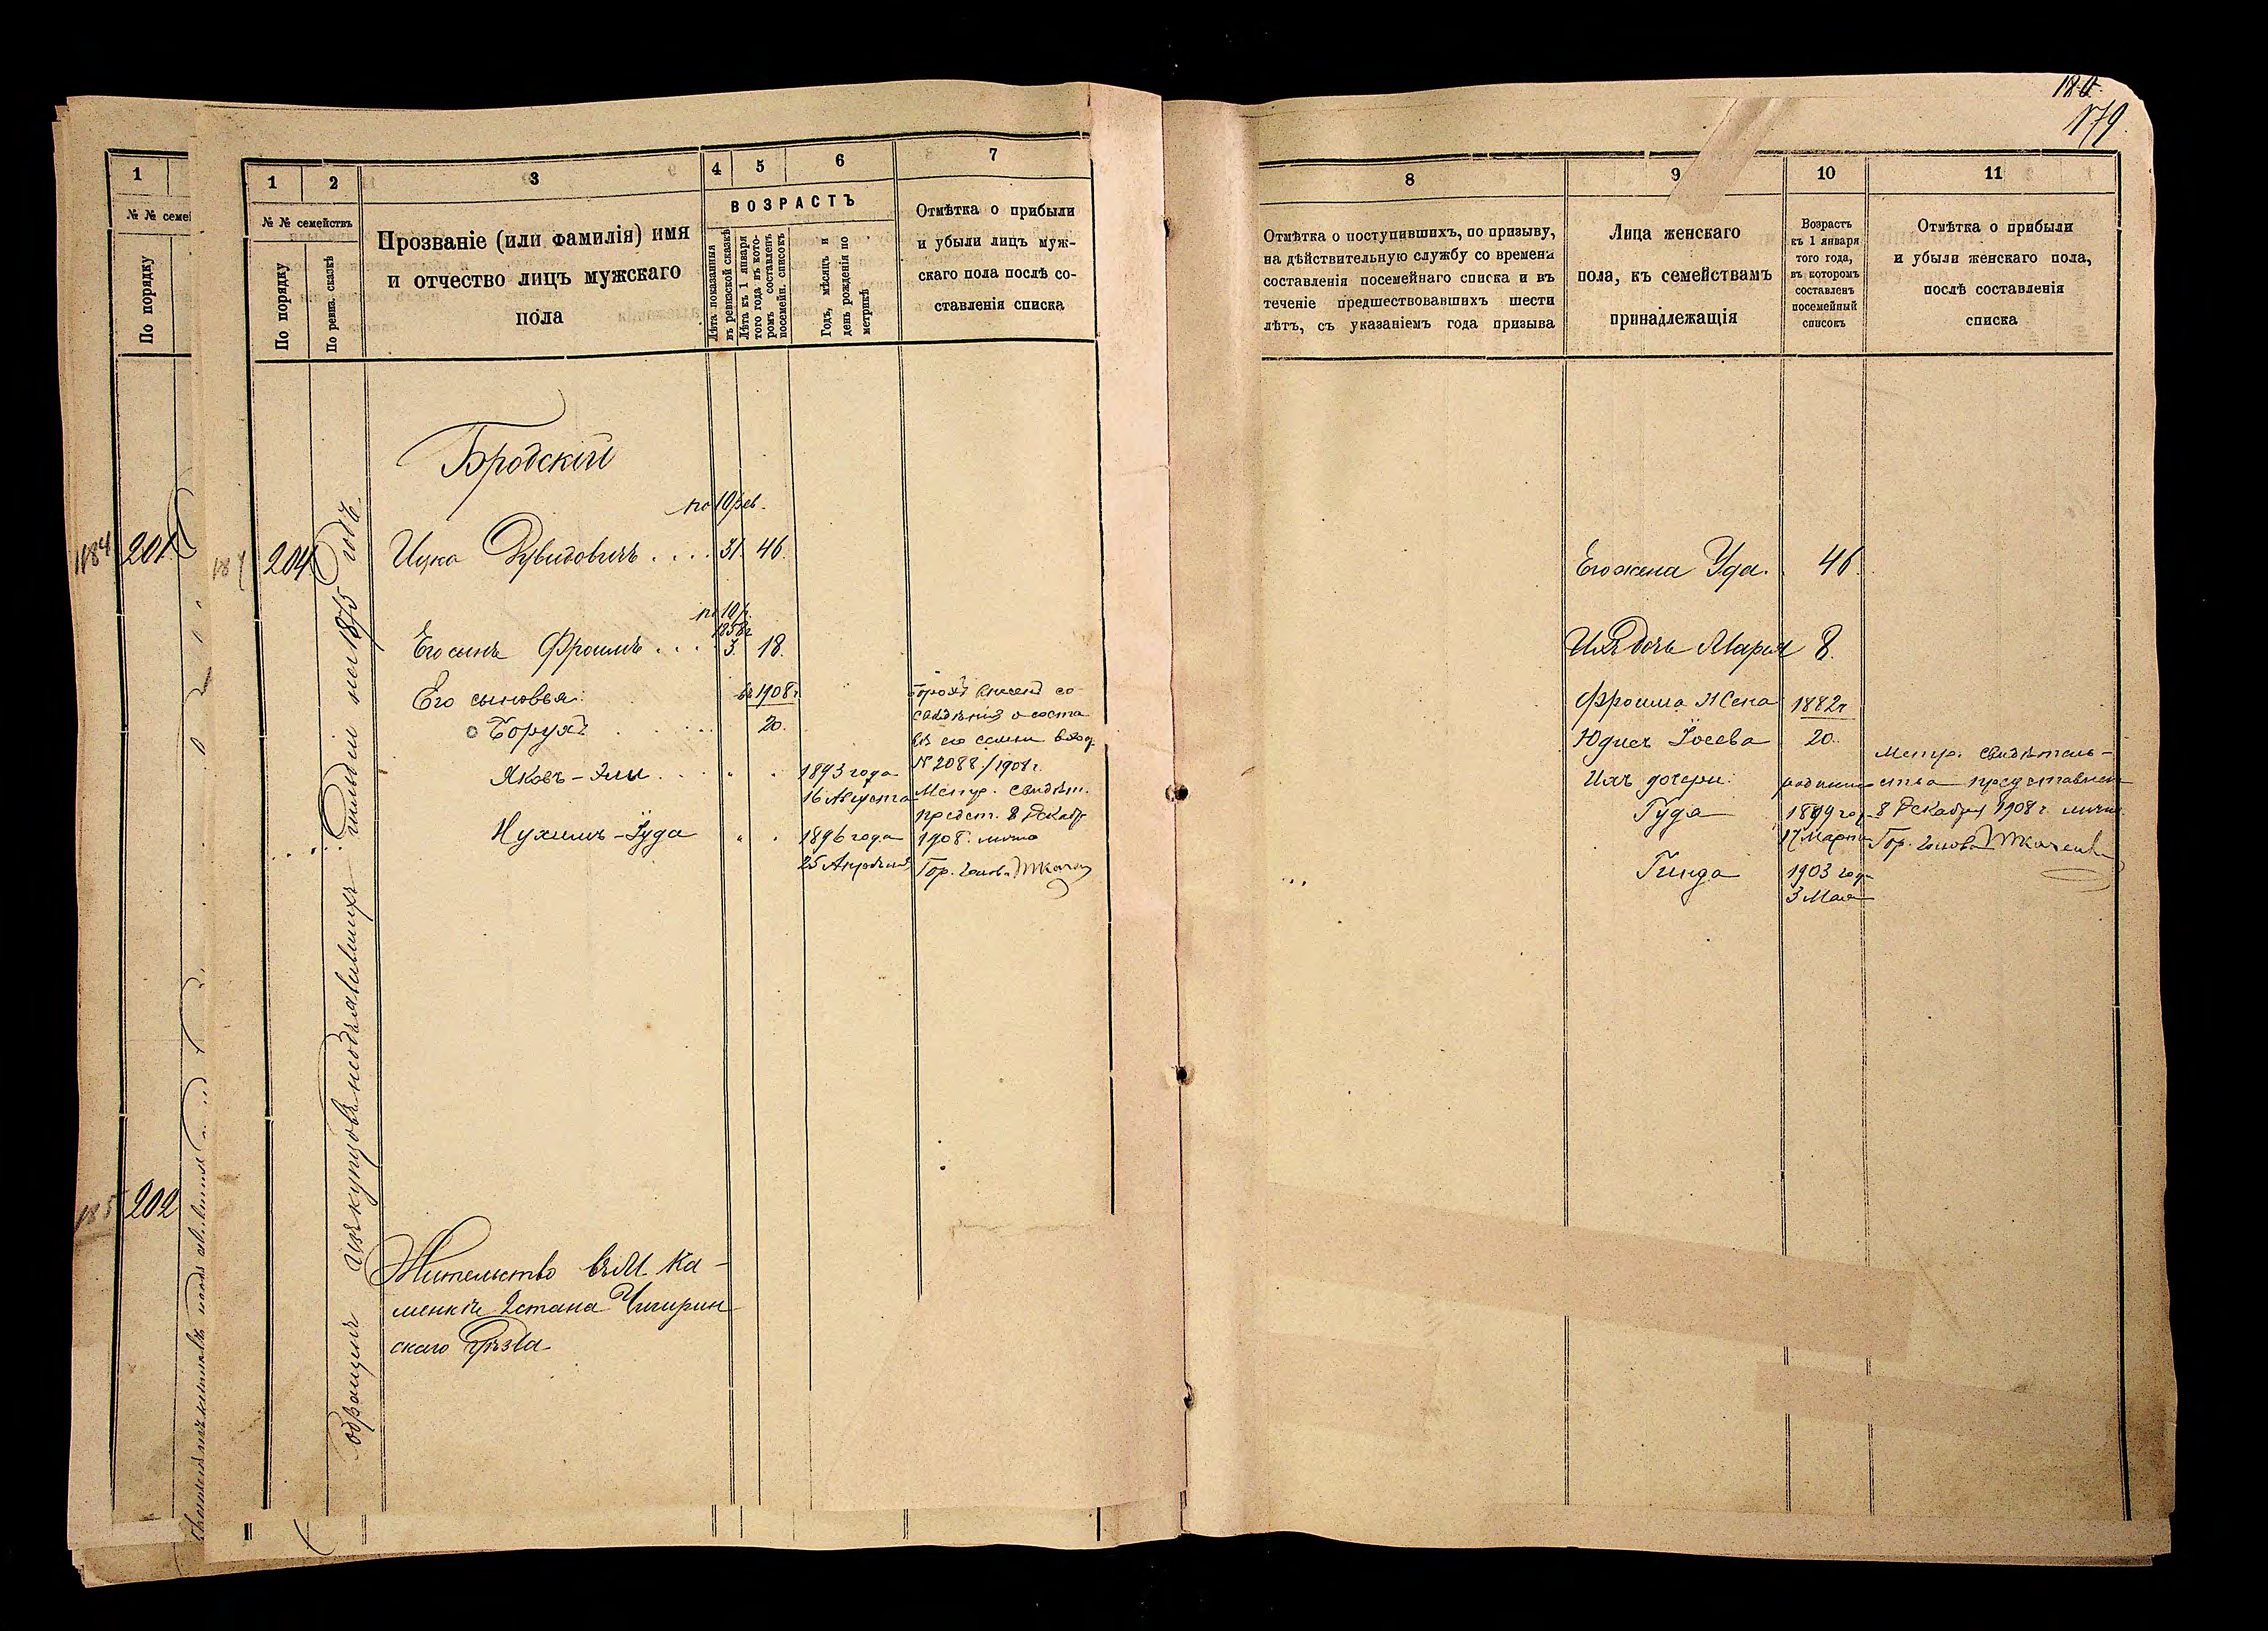 180.
179.
1
№ № семей
По порядку
1184
201.
185
202
1
2
3
4
5
6
7
№ № семействъ
По порядку
По ревиз. сказкѣ
Прозваніе (или фамилія) имя
и отчество лицъ мужскаго
пола
ВОЗРАСТЪ
Лѣта показанныя
въ ревизской сказкѣ
Лѣта къ 1 января
того года въ кото-
ромъ составленъ
посемейн. списокъ
Годъ, мѣсяцъ и
день рожденія по
метрикѣ
Отмѣтка о прибыли
и убыли лицъ муж-
скаго пола послѣ со-
ставленія списка
Бродскій
по 10 рев.
187
204.
Ицка Дувидовичъ . . . . 31. 46.
по 10 р.
1858 г
Его сынъ Фроимъ . . . 3. 18.
Его сыновья: въ 1908 г
Борухъ 20.
Яковъ-Эли 1893 года
16 Августа
Нухимъ-Іуда 1896 года
25
Борухъ внесенъ со-
свѣдѣній о соста
вѣ его семьи вход.
№ 2088/1908 г.
Метр. свидѣт.
предст. 8 Декабр
1908. лично
Гор. голова Ткаченко
обращенъ изъ купцовъ необъявившихъ на 1875 годъ.
Жительство въ М. Ка-
менкѣ 2 стана Чигирин-
скаго Уѣзда
8
9
10
11
Отмѣтка о поступившихъ, по призыву,
на дѣйствительную службу со времени
составленія посемейнаго списка и въ
теченіе предшествовавшихъ шести
лѣтъ, съ указаніемъ года призыва
Лица женскаго
пола, къ семействамъ
принадлежащія
Возрастъ
къ 1 января
того года,
въ которомъ
составленъ
посемейный
списокъ
Отмѣтка о прибыли
и убыли женскаго пола,
послѣ составленія
списка
Его жена Уда. 46.
Ихъ дочь Марія 8.
Фроима Жена 1882 г
Юдись Іосева 20.
Ихъ дочери: родились
Гуда 1899 год
17 Марта
Гинда 1903 год
3 Мая
Метр. свидѣтель-
ства представлен
8 Декабря 1908 г. лично
Гор. голова Ткаченко